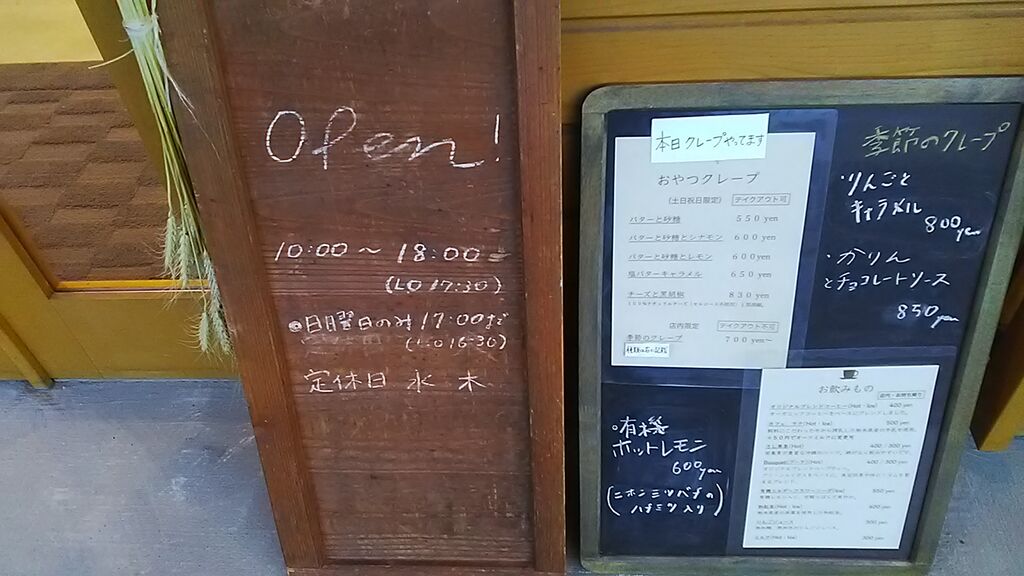 Open!
10:00 ~ 18:00
(LO 17:30)
●日曜日のみ 17:00まで
(LO 16:30)
定休日 水 木
本日クレープやってます
おやつクレープ
(土日祝日限定) テイクアウト可
バターと砂糖 550 yen
バターと砂糖とシナモン 600 yen
バターと砂糖とレモン 600 yen
塩バターキャラメル 650 yen
チーズと黒胡椒 830 yen
店内限定 テイクアウト不可
季節のクレープ 700 yen~
季節のクレープ
・りんごと
キャラメル
800yen
・かりん
とチョコレートソース
850yen
・有機
ホットレモン
600yen
(ニホンミツバチの
ハチミツ入り)
お飲みもの
オリジナルブレンドコーヒー(Hot・Ice) 400 yen
カフェ ラテ(Hot・Ice) 500 yen
(Hot) 400 / 500 yen
400 / 500 yen
550 yen
(Hot・Ice) 600 yen
りんごジュース 500 yen
ミルク(Hot・Ice) 300 yen